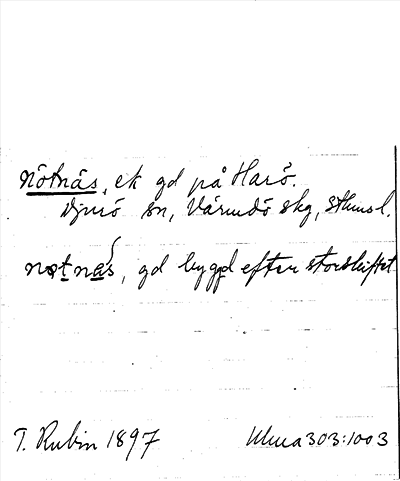 Nötnäs, ek gd på Harö.
Djurö sn, Värmdö skg, Sthmsl.
notnas, gd byggd efter storskiftet
T. Rubin 1897 Ulma 303:1003